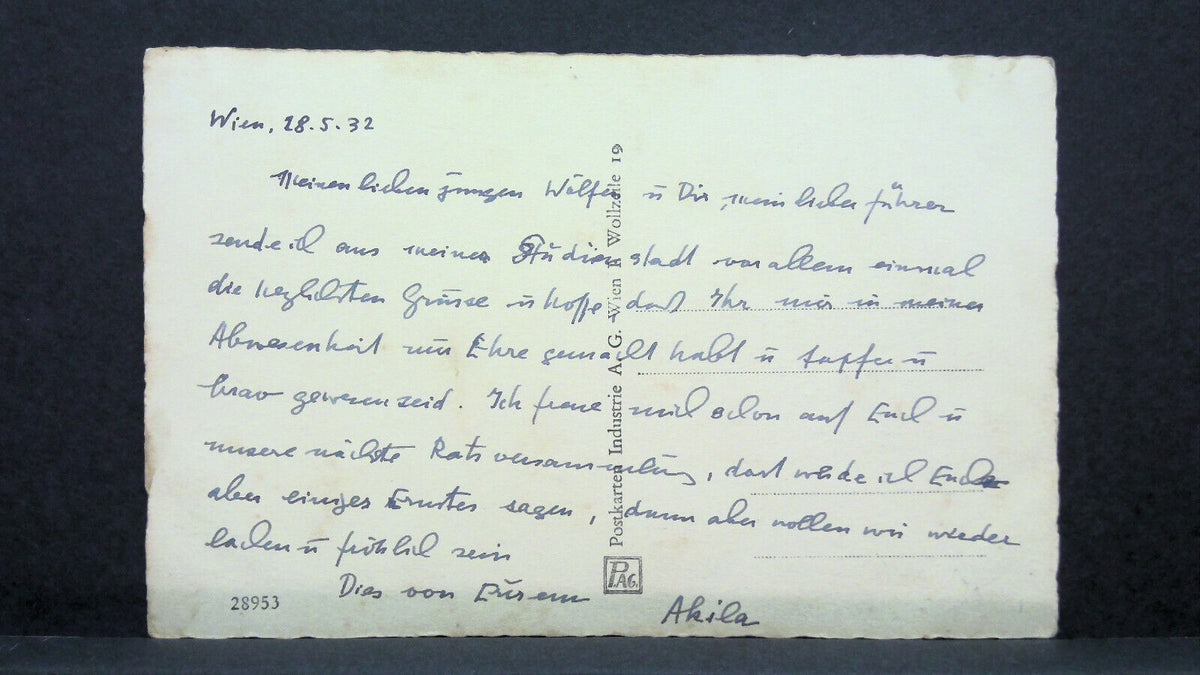 Wien, 28.5.32
Meinen lieben jungen Wölfen u Dir, mein lieber Führer
sende ich aus meiner Studienstadt vor allem einmal
die herzlichsten Grüsse u hoffe, dass Ihr mir in meiner
Abwesenheit nur Ehre gemacht habt u tapfer u
brav gewesen seid. Ich freue mich schon auf Euch u
unsere nächste Ratsversammlung, dort werde ich Euch
aber einiges Ernstes sagen, dann aber wollen wir wieder
lachen u fröhlich sein
Dies von Eurem
Akila
Postkarten Industrie A. G. Wien I Wollzeile 19
PAG.
28953